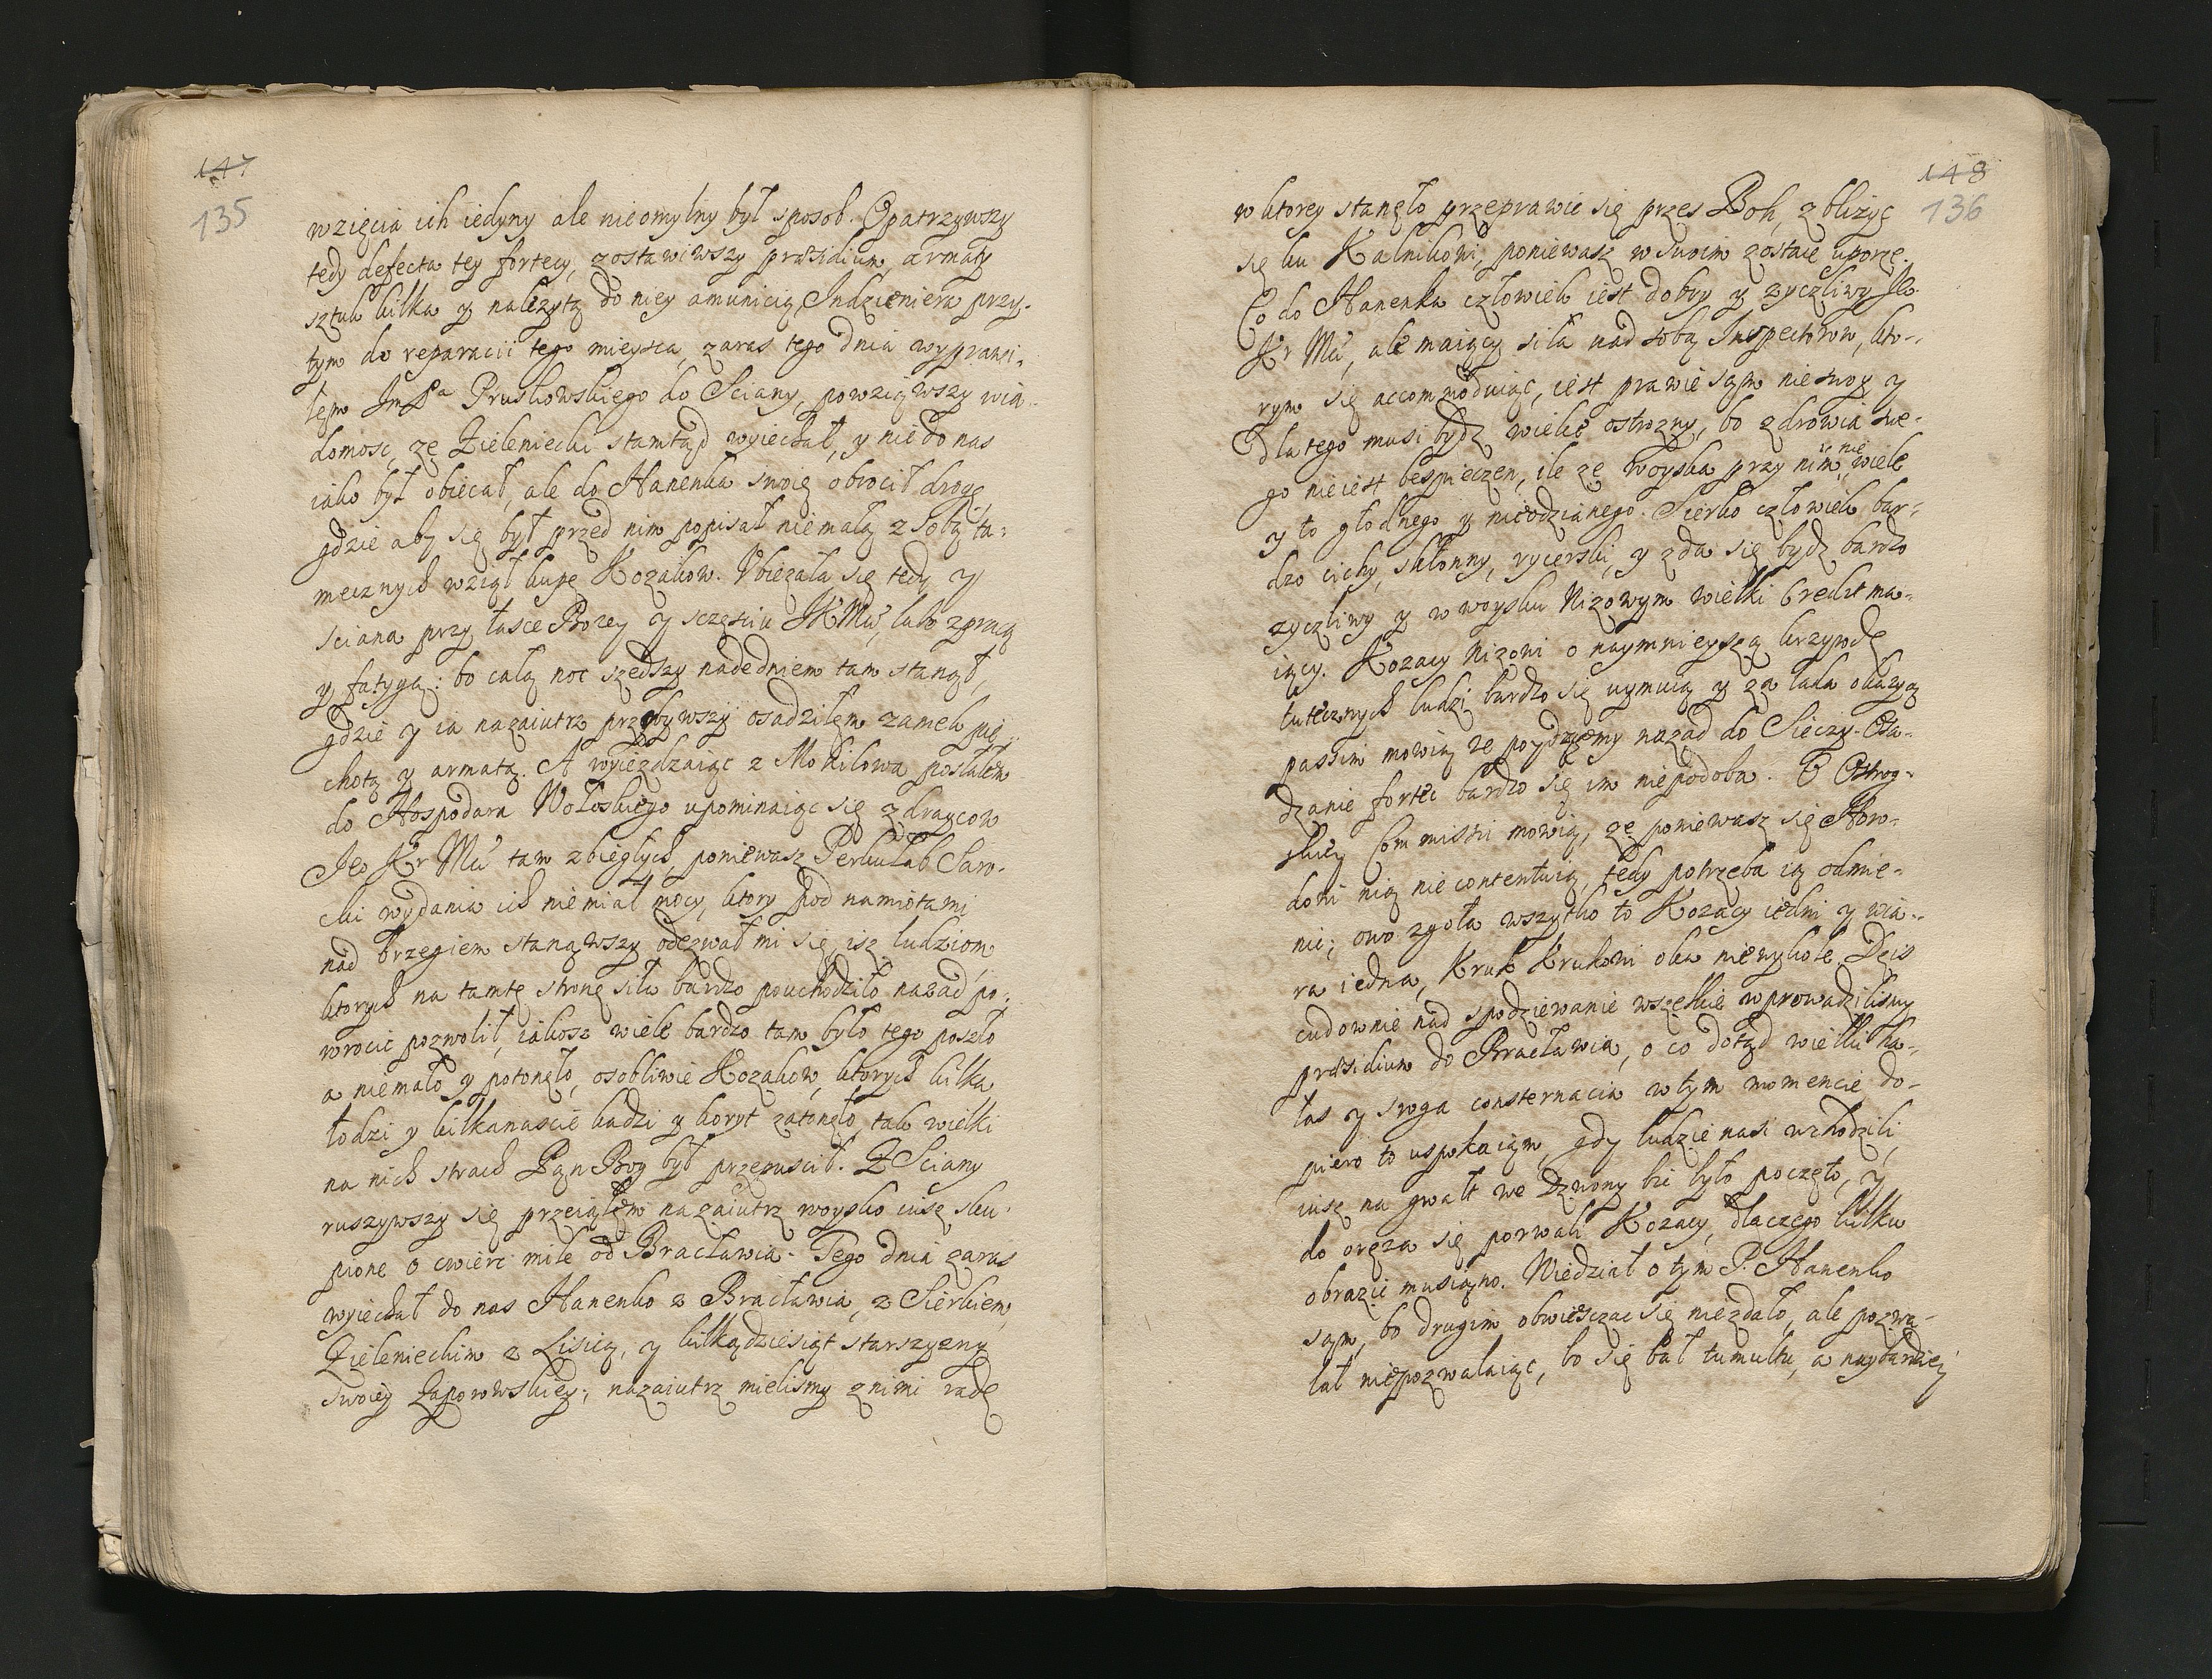 147
135
wzięcia ich iedyny ale nieomylny był sposob. Opatrzywszy
tedy defecta tey fortecy, zostawiwszy præsidium, armaty
sztuk kilka y należytą do niey amunicią Indzieniera przy-
tym do reparacii tego mieysca zaras tego dnia wyprawi-
łem ImPa Pruskowskiego do Sciany, powziąwszy wia-
domosc ze Zieleniecki stamtąd wyiechał, y nie do nas
iako był obiecał, ale do Hanenka swoię obrocił drogę
gdzie aby się był przed nim popisał niemałą z sobą ta-
mecznych wziął kupę Kozakow. Ubiezała się tedy y
sciana przy łasce Bozey y sczęsciu JKMci, lubo z pracą
y fatygą: bo całą noc szedszy nadedniem tam stanął,
gdzie y ia nazaiutrz przybywszy osadziłem zamek pie-
chotą y armatą. A wyiezdzaiąc z Mohilowa posłałem
do Hospodara Wołoskiego upominaiąc się zdraycow
Jeo Kr Mci tam zbiegłych, poniewasz Perkułab Saro-
cki wydania ich niemiał mocy, ktory pod namiotami
nad brzegiem stanąwszy odezwał mi się, isz ludziom
ktorych na tamtę stronę siła bardzo pouchodziło nazad po-
wrocic pozwolił, iakosz wiele bardzo tam było tego poszło
a niemało y potonęło, osobliwie Kozakow, ktorych kilka
łodzi y kilkanascie kadzi y koryt zatonęło, tak wielki
na nich strach Pan Bog był przepuscił. Z Sciany
ruszywszy się przeiąłem nazaiutrz woysko iusz sku-
pione o cwierc mile od Bracławia. Tego dnia zaras
wyiechał do nas Hanenko z Bracławia, z Sierkiem,
Zieleniechim z Lisicą, y kilkądziesiąt starszyzny
swoiey Zaporowskiey; nazaiutrz mielismy z nimi radę
148
136
w ktorey stanęło przeprawic się przes Boh, zblizyc
się ku Kalnikowi, poniewasz w swoim zostaie uporze.
Co do Hanenka człowiek iest dobry y zyczliwy Je
Kr Mci, ale maiący siła nad sobą Inspectorow, kto-
rym się accommoduiąc, iest prawie sam nie swoy y
dlatego musi bydz wielce ostrozny, bo zdrowia swe-
go nieiest bespieczen, ile ze woyska przy nim iż nie wiele
y to głodnego y nieodzianego. Sierko człowiek bar-
dzo cichy, skłonny, rycerski, y zda się bydz bardzo
zyczliwy y w woysku Nizowym wielki Credit ma-
iący. Kozacy Nizowi o naymnieyszą krzywdę
tutecznych ludzi bardzo się uymuią y za lada okazyą
passim mowią ze poydziemy nazad do Sieczy. Osa-
dzanie fortec bardzo się im niepodoba. O Ostrog-
skiey Commissii mowią, ze poniewasz się Horo-
dowi nią nie contentuią, tedy potrzeba ią odmie-
nic; owo zgoła wszytko to Kozacy iedni y wia-
ra iedna, Kruk Krukowi oka niewykole. Dzis
cudownie nad spodziewanie wszelkie wprowadzilismy
præsidium do Bracławia, o co dotąd wielki ha-
łas y sroga consternacia w tym momencie do-
piero to uspokaiam, gdy ludzie nasi wchodzili,
iusz na gwałt we dzwony bic było poczęto, y
do oręza się porwali Kozacy, dlaczego kilku
obrazic musiano. Wiedział o tym P. Hanenko
sam, bo drugim obwiesczac się niezdało, ale pozwa-
lał niepozwalaiąc, bo się bał tumultu, a naybardziey